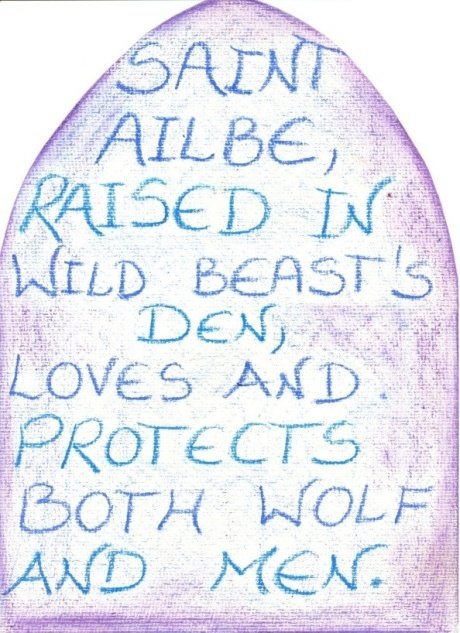 SAINT
AILBE,
RAISED IN
WILD BEAST'S
DEN,
LOVES AND.
PROTECTS
BOTH WOLF
AND MEN.